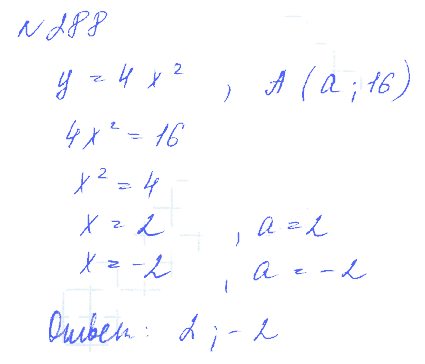 N 288
y = 4x², A(a; 16)
4x² = 16
x² = 4
x = 2, a = 2
x = -2, a = -2
Ответ: 2; -2